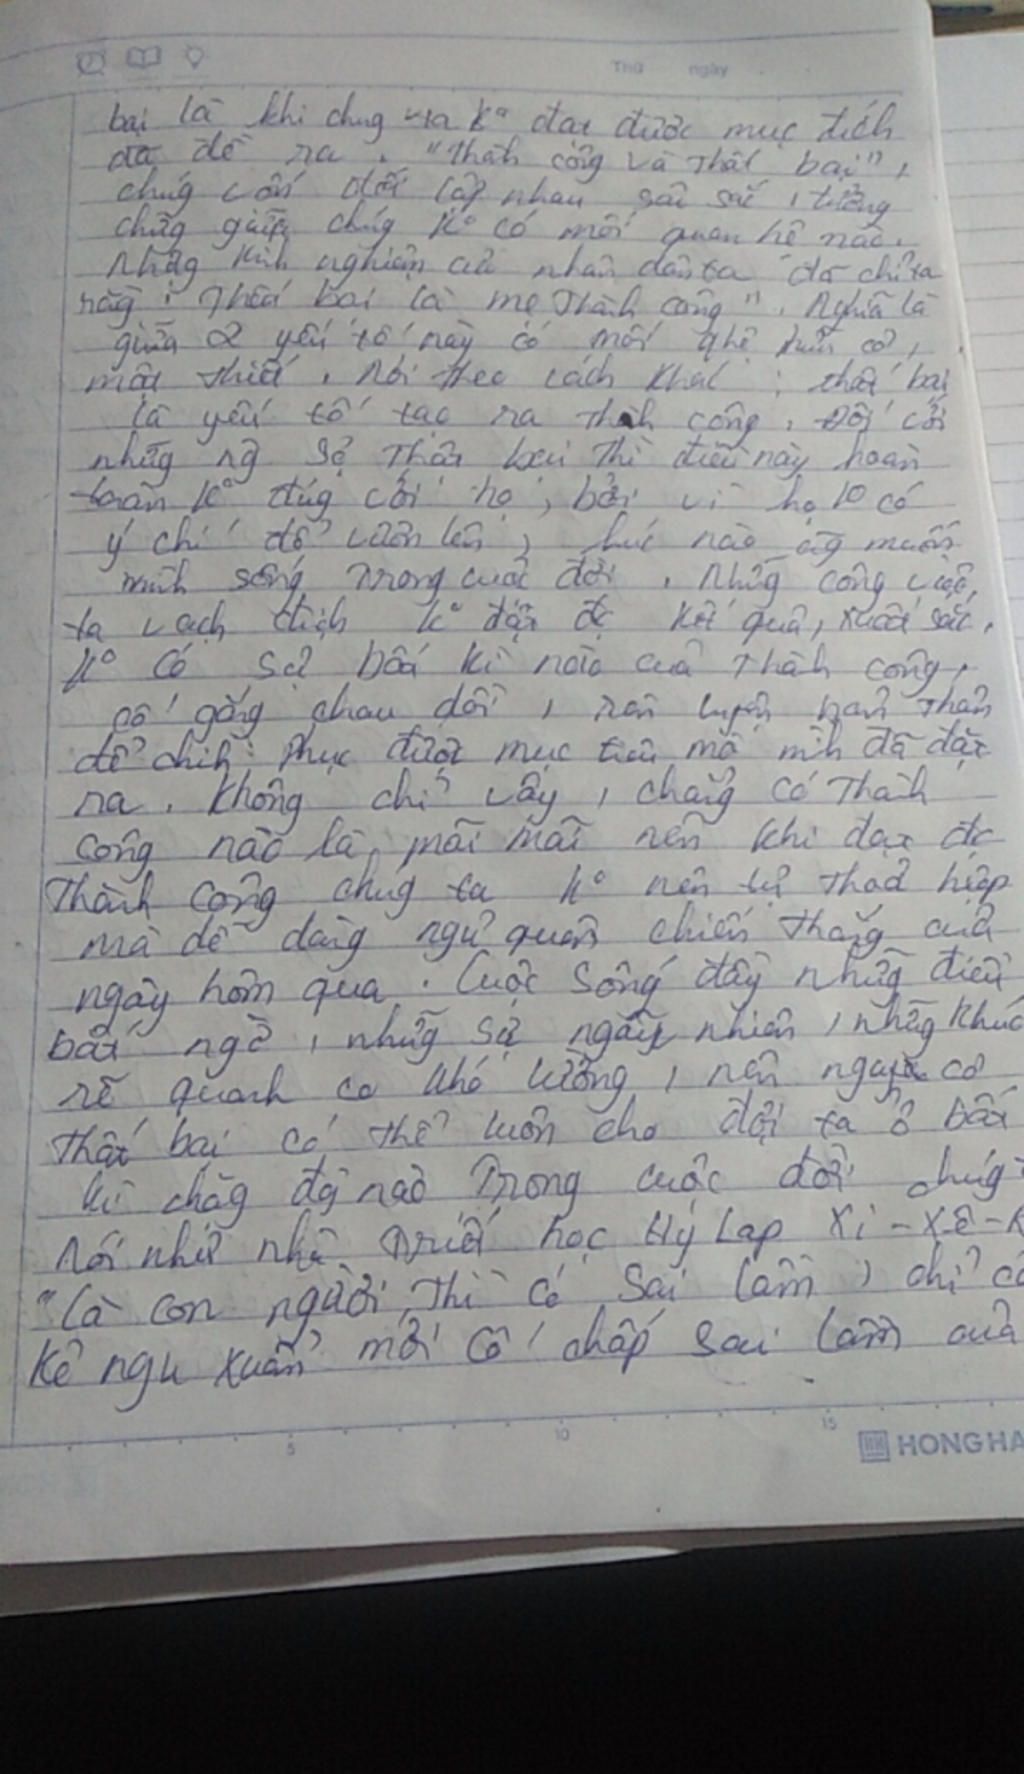 Thứ ngày
bại là khi chúg ta k° đạt được mục đích
đã đề ra. "Thàh công và Thất bại",
chúg vốn đối lập nhau sâu sắc, tưởng
chừg giữa chúg k° có mối quan hệ nào.
Nhữg kinh nghiệm của nhân dân ta đã chỉ ra
rằg: Thất bại là mẹ Thành công". Nghĩa là
giữa 2 yếu tố này có mối qhệ hữu cơ,
mật thiết. Nói theo cách khác: thất bại
là yếu tố tạo ra Thàh công. Đối với
nhữg ng sợ Thất bại thì điều này hoàn
toàn k° đúg với họ, bởi vì họ k° có
ý chí để vươn lên, lúc nào cũg muốn
mình sống Trong cuộc đời. Nhữg công việc
ta vạch địch k° đạt đc kết quả, xuất sắc.
k° có sự bất kì nào của Thàh công,
cố gắng chau dồi, rèn luyện bản Thân
để chih phục được mục tiêu mà mìh đã đặt
ra. Không chỉ vậy, chẳg có Thàh
công nào là mãi mãi nên khi đạt đc
Thành công chúg ta k° nên tự Thoả hiệp
mà dễ dàng ngủ quên chiến Thắg của
ngày hôm qua. Cuộc Sống đầy nhữg điều
bất ngờ, nhữg sự ngẫu nhiên, nhữg khúc
rẽ quanh co khó lường, nên nguy cơ
Thất bại có thể luôn chờ đợi ta ở bất
kì chặg đg nào Trong cuộc đời chúg
Nói như nhà Triết học Hy Lạp Xi-xê-
"Là con người Thì có Sai lầm, chỉ có
kẻ ngu xuẩn mới cố chấp sai lầm của
5 10 15
HONG HA